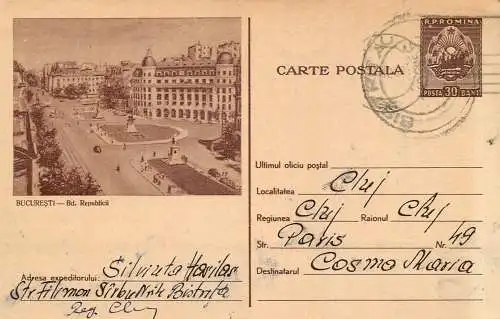 R.P.ROMINA
POSTA 30 BANI
CARTE POSTALA
BUCUREȘTI — Bd. Republicii
Ultimul oficiu poștal
Localitatea Cluj
Regiunea Cluj Raionul Cluj
Str. Paris Nr. 49
Destinatarul Cosma Maria
Adresa expeditorului: Silvinta
Str Filimon Sîrbu Nr. Bistrița
Reg. Cluj